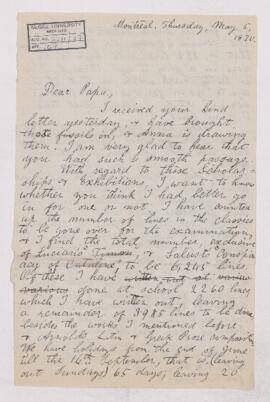 McGILL UNIVERSITY
ARCHIVES
ACC. NO.
REF.
Montreal, Thursday, May 5,
1870.
Dear Papa,
I received your kind
letter yesterday, & have brought
those fossils on, & Anna is drawing
them. I am very glad to hear that
you had such a smooth passage.
With regard to those Scholar-
ships & Exhibitions, I want to know
whether you think I had better go
in for one or not. I have counted
up the number of lines in the classics
to be gone over for the examination,
& I find the total number, exclusive
of Lucian's & Sallust's Conspir
acy of Catiline to be 6,245 lines.
Of these I have
various done at school 2260 lines
which I have written out, leaving
a remainder of 3985 lines to be done
besides the works I mentioned before
& Arnold's Latin & Greek Prose Composit
We have holidays from the end of June
till the 16th September, that is (leaving
out Sundays) 65 days; leaving 20